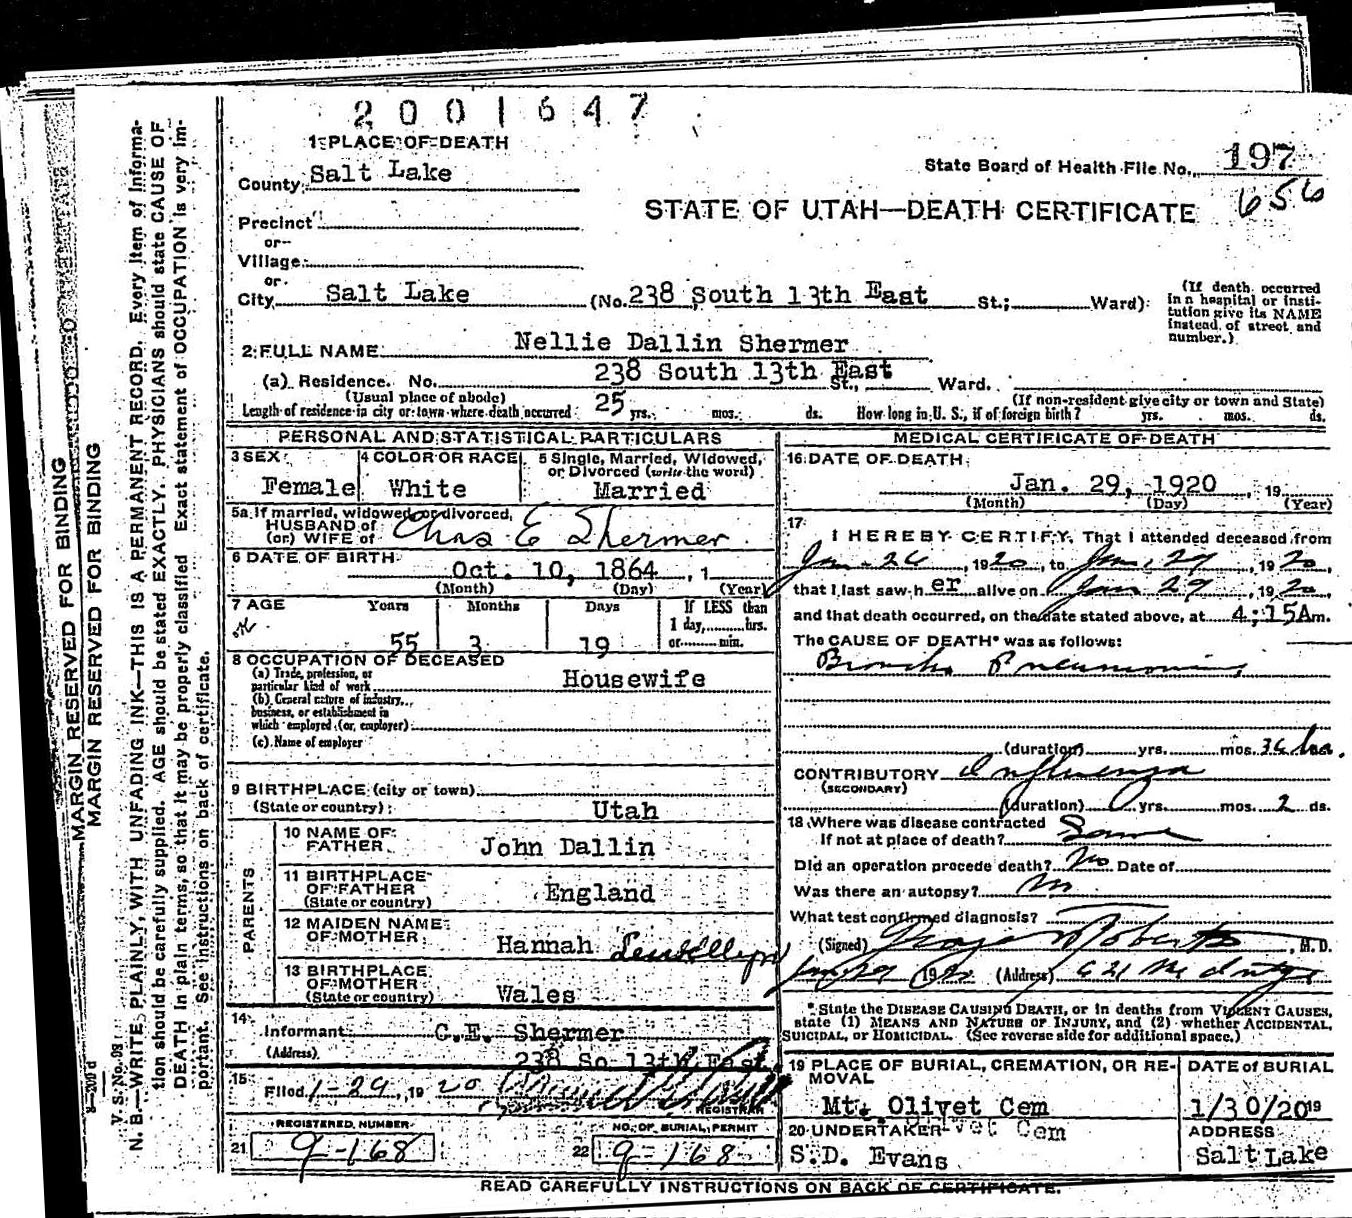 2001647
1 PLACE OF DEATH
County Salt Lake
State Board of Health File No. 197
656
STATE OF UTAH—DEATH CERTIFICATE
Precinct
or
Village
or
City Salt Lake (No. 238 South 13th East St.; Ward)
(If death occurred in a hospital or institution give its NAME instead of street and number.)
2 FULL NAME Nellie Dallin Shermer
(a) Residence. No. 238 South 13th East St., Ward.
(Usual place of abode) (If non-resident give city or town and State)
Length of residence in city or town where death occurred 25 yrs. mos. ds. How long in U. S., if of foreign birth? yrs. mos. ds.
PERSONAL AND STATISTICAL PARTICULARS
3 SEX Female
4 COLOR OR RACE White
5 Single, Married, Widowed, or Divorced (write the word) Married
5a If married, widowed or divorced,
HUSBAND of
(or) WIFE of Chas E Shermer
6 DATE OF BIRTH Oct. 10, 1864, 1
(Month) (Day) (Year)
7 AGE Years 55 Months 3 Days 19
If LESS than 1 day, hrs. or min.
8 OCCUPATION OF DECEASED
(a) Trade, profession, or particular kind of work Housewife
(b) General nature of industry, business, or establishment in which employed (or employer)
(c) Name of employer
9 BIRTHPLACE (city or town)
(State or country) Utah
PARENTS
10 NAME OF FATHER John Dallin
11 BIRTHPLACE OF FATHER (State or country) England
12 MAIDEN NAME OF MOTHER Hannah Lewellyn
13 BIRTHPLACE OF MOTHER (State or country) Wales
14 Informant C.E. Shermer
(Address) 238 So 13th East
15 Filed 1-29, 1920
REGISTRAR
REGISTERED NUMBER
21 9-168
NO. OF BURIAL PERMIT
22 9-168
MEDICAL CERTIFICATE OF DEATH
16 DATE OF DEATH
Jan. 29, 1920, 19
(Month) (Day) (Year)
17 I HEREBY CERTIFY, That I attended deceased from
Jan-26, 1920, to Jan. 29, 1920,
that I last saw her alive on Jan 29, 1920,
and that death occurred, on the date stated above, at 4:15 A m.
The CAUSE OF DEATH* was as follows:
Broncho Pneumonia
(duration) yrs. mos. 36 hrs.
CONTRIBUTORY Influenza
(SECONDARY)
(duration) 0 yrs. mos. 2 ds.
18 Where was disease contracted
If not at place of death? Same
Did an operation precede death? No Date of
Was there an autopsy? No
What test confirmed diagnosis?
(Signed) Roberts, M.D.
Jan 29 1920 (Address) 621 McIntyre
*State the DISEASE CAUSING DEATH, or in deaths from VIOLENT CAUSES,
state (1) MEANS AND NATURE OF INJURY, and (2) whether ACCIDENTAL,
SUICIDAL, or HOMICIDAL. (See reverse side for additional space.)
19 PLACE OF BURIAL, CREMATION, OR REMOVAL
Mt. Olivet Cem
DATE of BURIAL
1/30/20 19
20 UNDERTAKER
S.D. Evans
ADDRESS
Salt Lake
READ CAREFULLY INSTRUCTIONS ON BACK OF CERTIFICATE.
MARGIN RESERVED FOR BINDING
MARGIN RESERVED FOR BINDING
V. S. No. 98
N. B.—WRITE PLAINLY, WITH UNFADING INK—THIS IS A PERMANENT RECORD. Every item of informa-
tion should be carefully supplied. AGE should be stated EXACTLY. PHYSICIANS should state CAUSE OF
DEATH in plain terms, so that it may be properly classified. Exact statement of OCCUPATION is very im-
portant. See instructions on back of certificate.